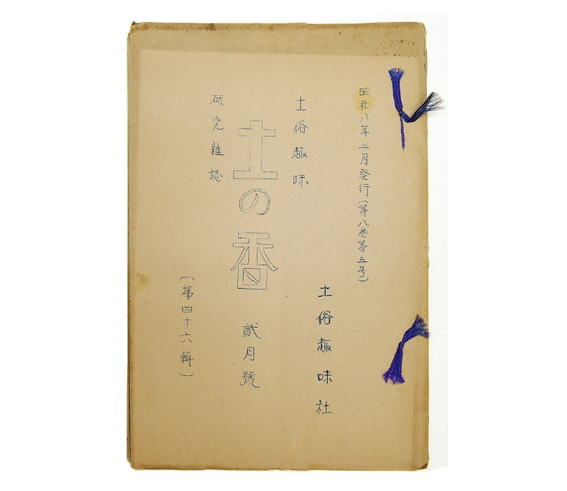 昭和八年二月発行(第八巻第五号)
土俗趣味社
土俗趣味
研究雑誌
土の香
貳月號
(第四十六輯)